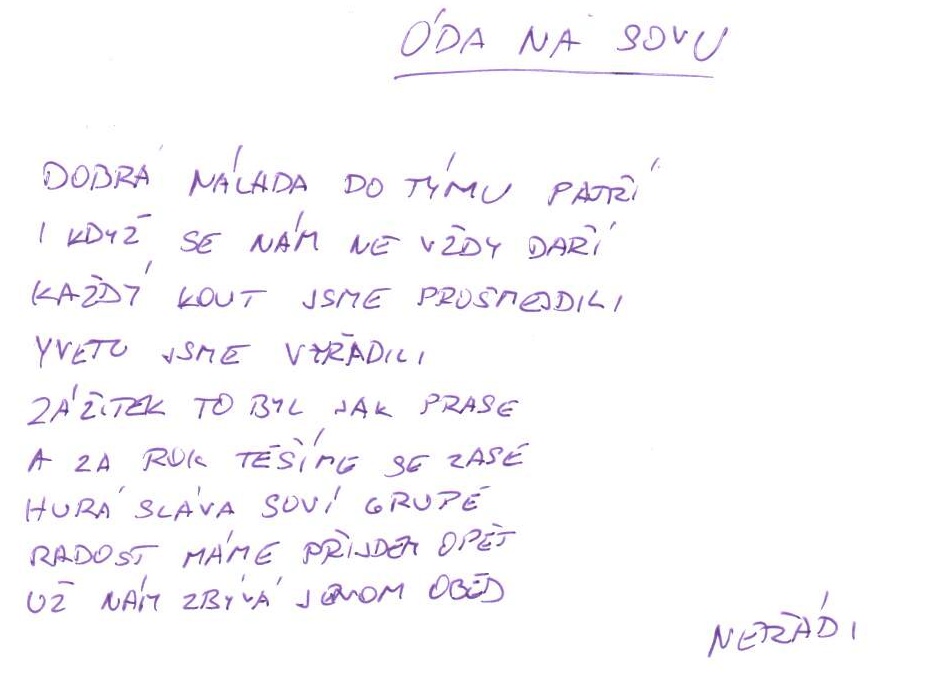 ÓDA NA SOVU
DOBRÁ NÁLADA DO TÝMU PATŘÍ
I KDYŽ SE NÁM NE VŽDY DAŘÍ
KAŽDÝ KOUT JSME PROŠMEJDILI
YVETU JSME VYŘÁDILI
ZÁŽITEK TO BYL JAK PRASE
A ZA ROK TĚŠÍME SE ZASE
HURÁ SLÁVA SOVÍ GRUPĚ
RADOST MÁME PŘIJDEM OPĚT
UŽ NÁM ZBÝVÁ JENOM OBĚD
NEŘÁDI